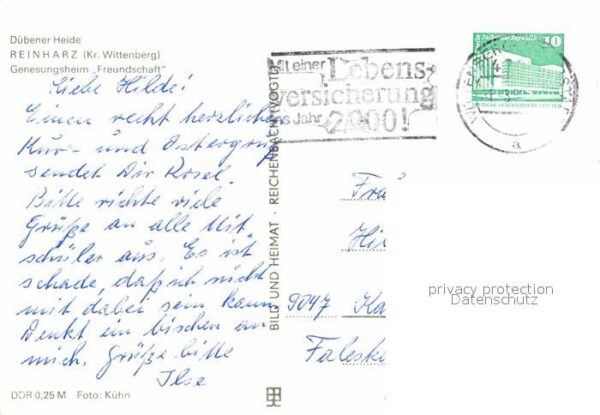 Dübener Heide
REINHARZ (Kr. Wittenberg)
Genesungsheim „Freundschaft“
Liebe Hilde!
Einen recht herzlichen
Kur- und Ostergruß
sendet Dir Rosel.
Bitte richte viele
Grüße an alle Mit
schüler aus. Es ist
schade, daß ich nicht
mit dabei sein kann
Denkt ein bischen an
mich. Grüße bitte
Ilse
DDR 0,25 M Foto: Kühn
BILD UND HEIMAT · REICHENBACH (VOGTL)
Mit einer
Lebens-
versicherung
ins Jahr
2000!
10
a
Fra
Hi
9047 Ka
Faleske
privacy protection
Datenschutz